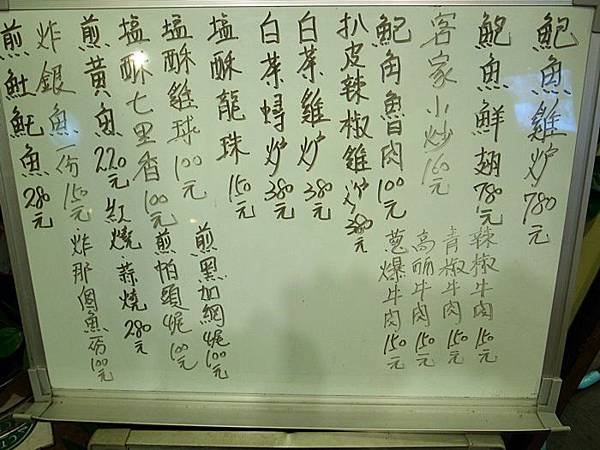 鮑魚雞炉780元
鮑魚鮮翅780元
辣椒牛肉150元
客家小炒160元
青椒牛肉150元
高丽牛肉150元
鮑角魚白肉100元
蔥爆牛肉150元
扒皮辣椒雞炉380元
白菜雞炉380元
白菜蟳炉380元
塩酥龍珠150元
煎黑加網妮100元
塩酥雞球100元
煎帕頭妮100元
塩酥七里香100元
煎黃魚220元紅燒.蒜燒280元
炸銀魚一份150元.炸那個魚一份100元
煎魠魚280元